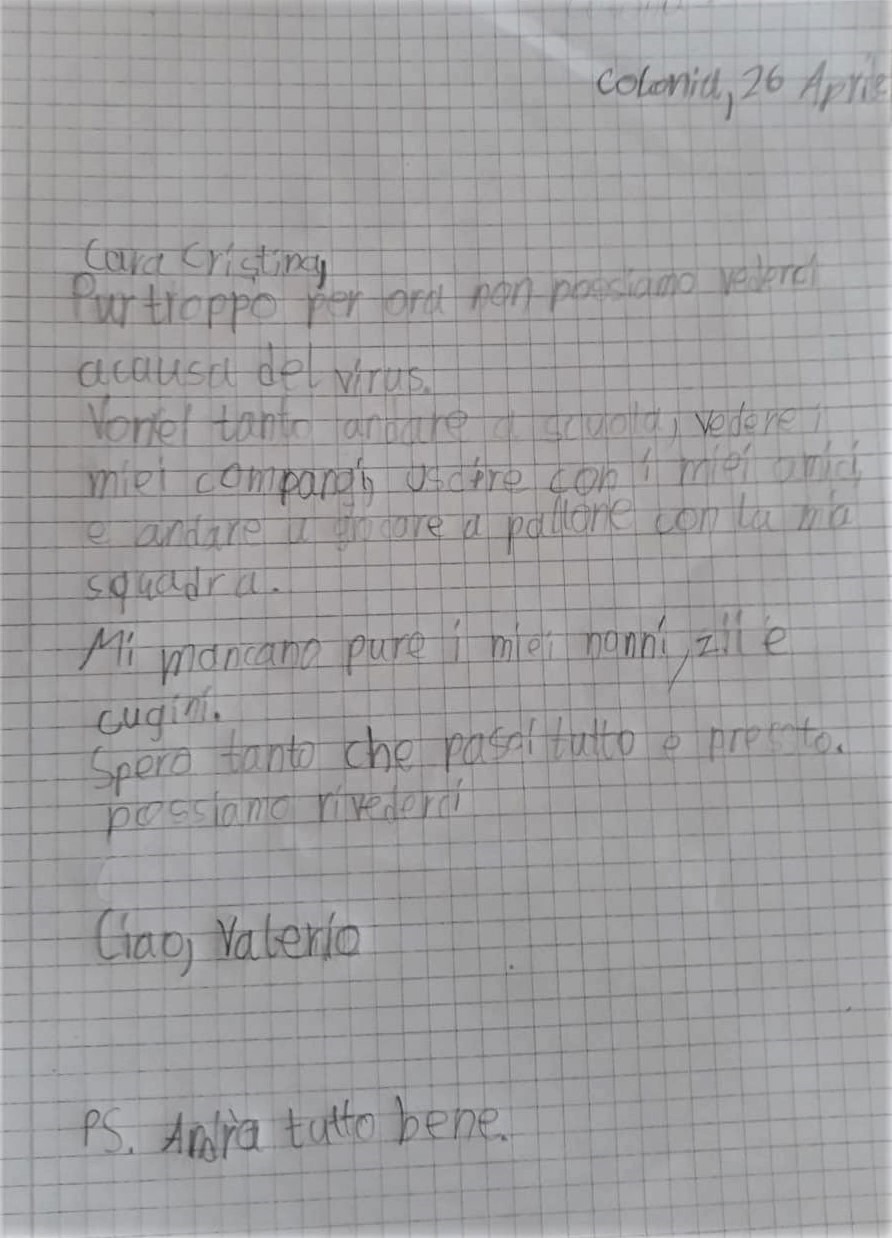 Colonia, 26 Aprile
Cara Cristina,
Purtroppo per ora non possiamo vederci
acausa del virus.
Vorrei tanto andare a scuola, vedere i
miei compangi, uscire con i miei amici,
e andare a giocare a pallone con la mia
squadra.
Mi mancano pure i miei nonni, zii e
cugini.
Spero tanto che passi tutto e presto.
possiamo rivederci
Ciao, Valerio
PS. Andrà tutto bene.